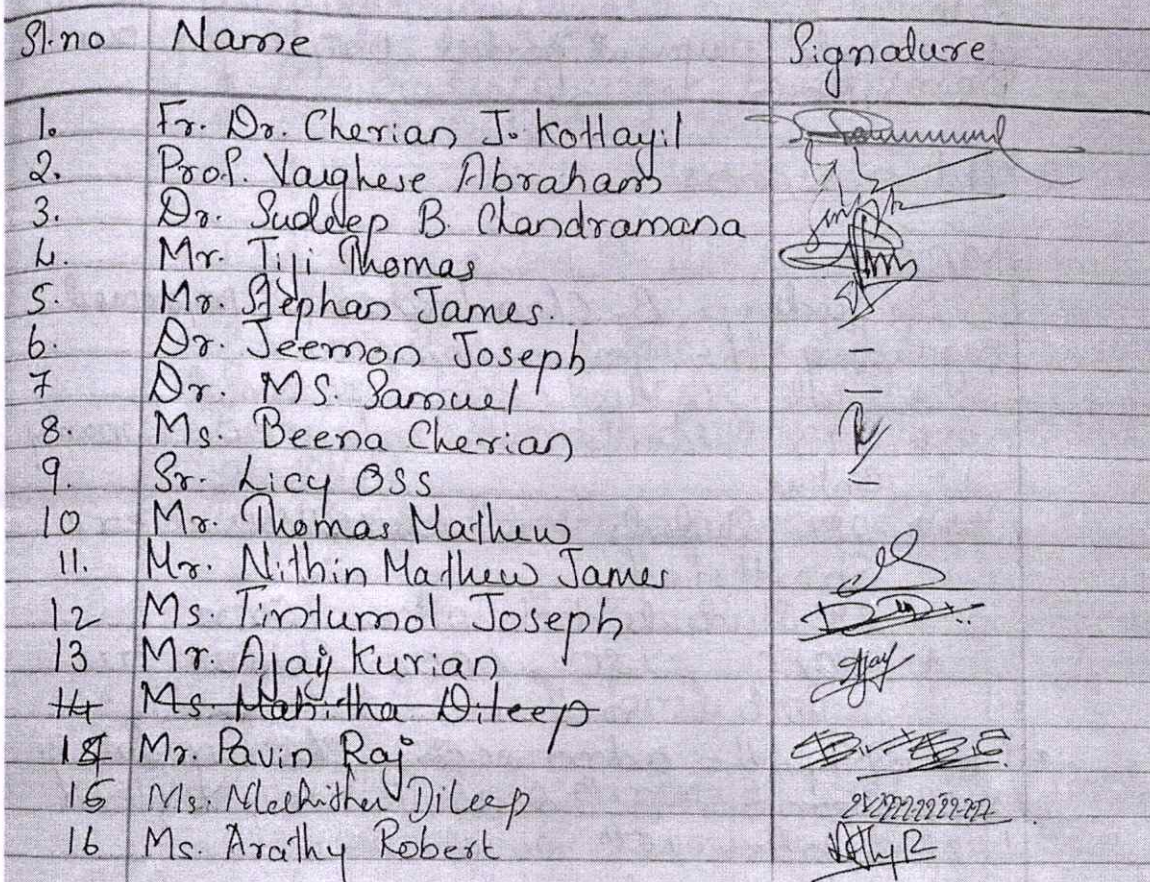 Sl.no Name Signature
1. Fr. Dr. Cherian J. Kottayil
2. Prof. Varghese Abraham
3. Dr. Sudeep B. Chandramana
4. Mr. Tiji Thomas
5. Mr. Stephan James.
6. Dr. Jeemon Joseph –
7 Dr. MS. Samuel –
8. Ms. Beena Cherian
9. Sr. Licy OSS –
10 Mr. Thomas Mathew
11. Mr. Nithin Mathew James
12 Ms. Tintumol Joseph
13 Mr. Ajay Kurian Ajay
14 Ms. Mahitha Dileep
14 Mr. Pavin Raj
15 Ms. Dileep
16 Ms. Arathy Robert